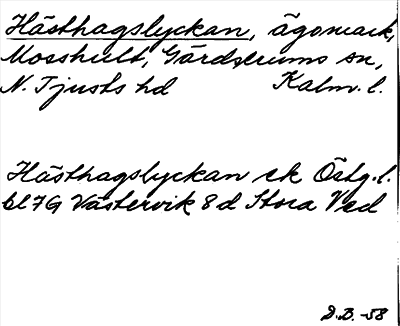 Hästhagslyckan, ägomark,
Mosshult, Gärdserums sn,
N. Tjusts hd Kalm. l.
Hästhagslyckan ek Östg. l.
bl 7G Västervik 8 d Stora Ved
D.B. -58